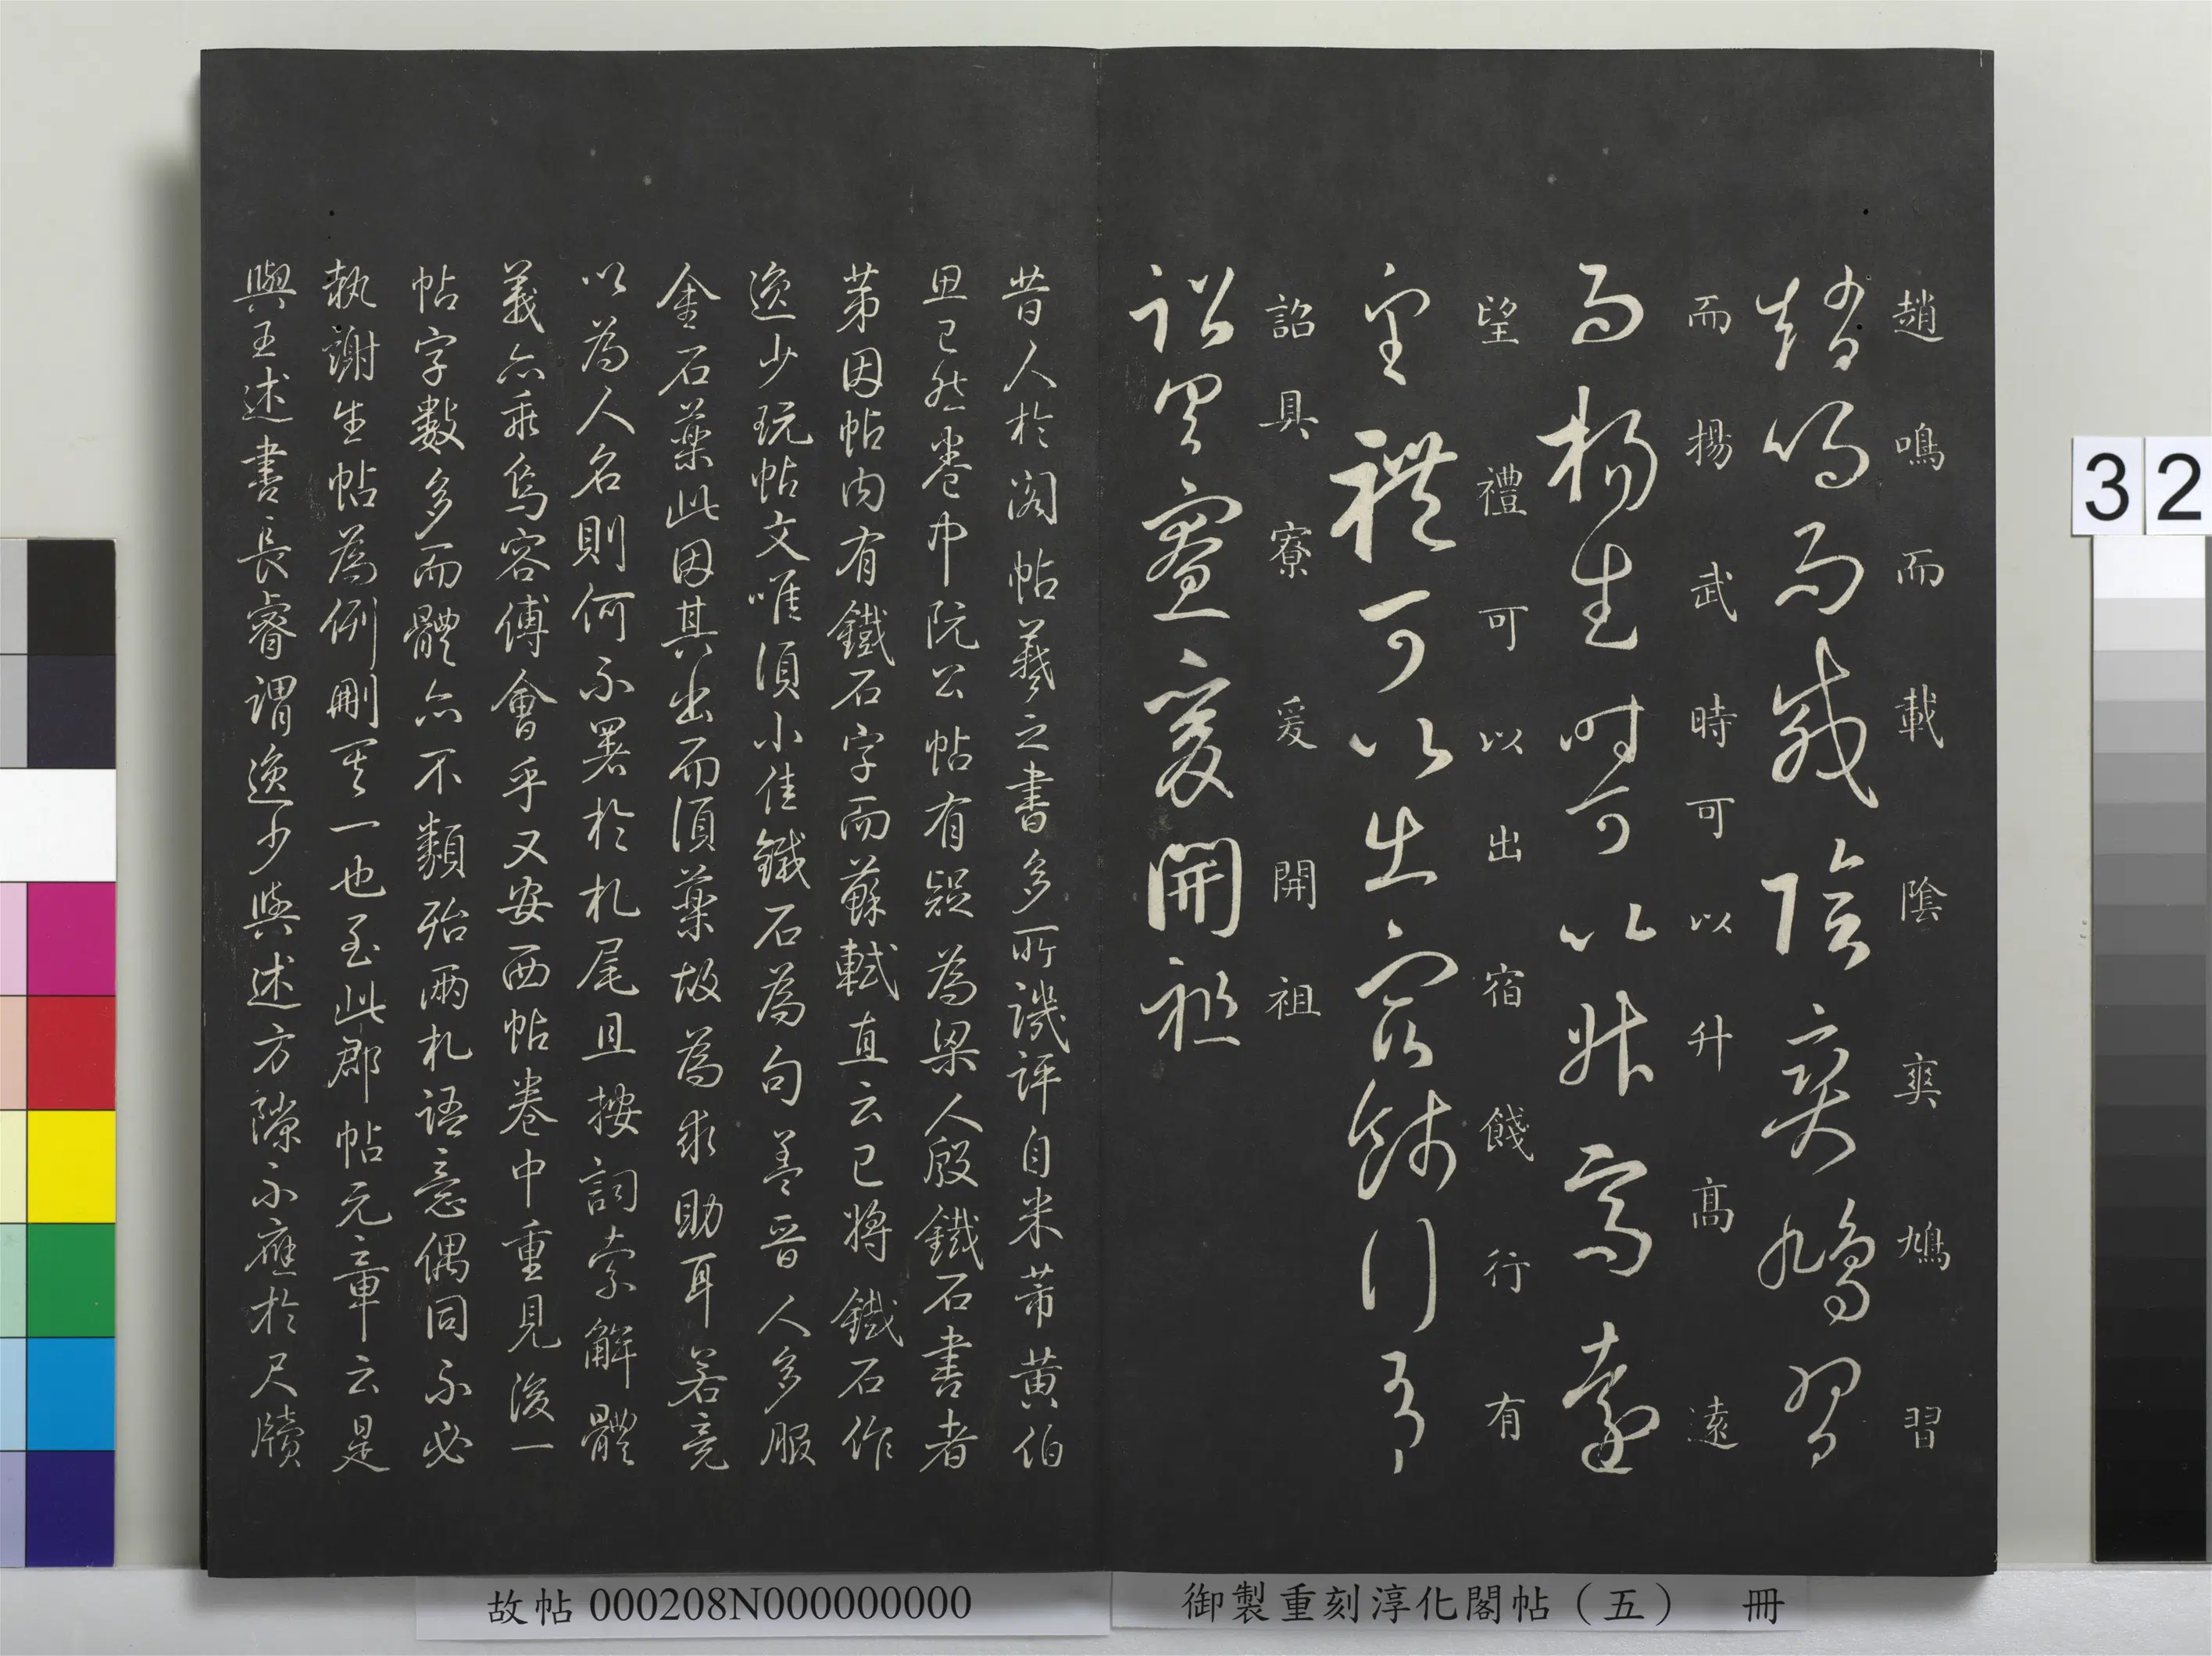 趙鳴而載陰爽鳩習
趙鳴而載陰爽鳩習
而揚武時可以升高遠
而揚武時可以升高遠
望禮可以出宿餞行有
望禮可以出宿餞行有
詔具寮爰開祖
詔具寮爰開祖
昔人於閣帖羲之書多所譏評自米芾黄伯
思已然卷中阮公帖有疑為梁人殷鐵石書者
第因帖内有鐵石字而蘇軾直云已將鐵石作
逸少玩帖文唯須小佳鐵石為句蓋晉人多服
金石藥此因其出而須藥故為求助耳若竟
以為人名則何不署於札尾且按詞索解體
義亦乖烏容傅會乎又安西帖卷中重見後一
帖字數多而體亦不類殆兩札語意偶同不必
執謝生帖為例刪其一也至此郡帖元章云是
與王述書長睿謂逸少與述方隙不應於尺牘
32
故帖 000208N000000000
御製重刻淳化閣帖（五） 冊